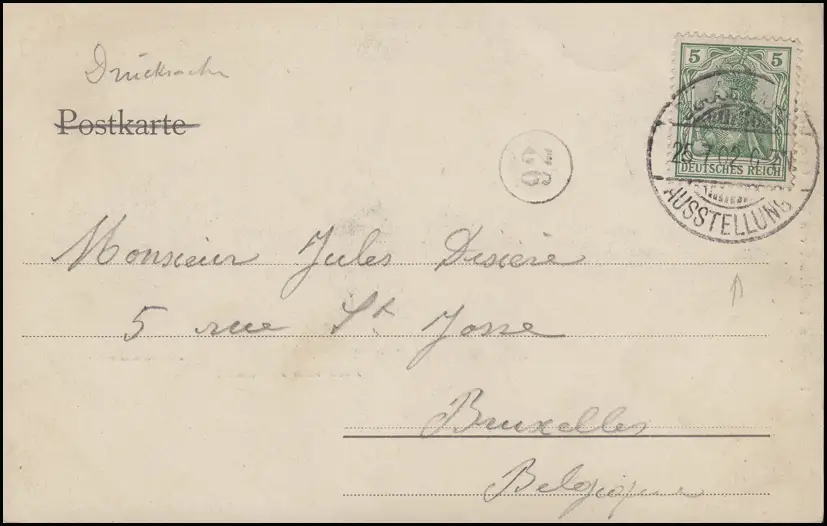 Drucksache
Postkarte
5 5
DEUTSCHES REICH
29.7.02.6-7N
AUSSTELLUNG
92
Monsieur Jules Disière
5 rue St Josse
Bruxelles
Belgique